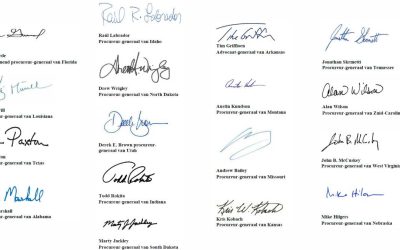 mend procureur-generaal van Florida
Procureur-generaal van Louisiana
Paxton
Procureur-generaal van Texas
Marshall
Marshall
Procureur-generaal van Alabama
Raúl R. Labrador
Raúl Labrador
Procureur-generaal van Idaho
Drew Wrigley
Procureur-generaal van North Dakota
Derek E. Brown procureur-
generaal van Utah
Todd Rokita
Todd Rokita
Procureur-generaal van Indiana
Marty J. Jackley
Marty Jackley
Procureur-generaal van South Dakota
Tim Griffin
Tim Griffioen
Advocaat-generaal van Arkansas
Austin Knudson
Procureur-generaal van Montana
Andrew Bailey
Procureur-generaal van Missouri
Kris W. Kobach
Kris Kobach
Procureur-generaal van Kansas
Jonathan Skrmetti
Jonathan Skrmetti
Procureur-generaal van Tennessee
Alan Wilson
Alan Wilson
Procureur-generaal van Zuid-Carolina
John B. McCuskey
John B. McCuskey
Procureur-generaal van West Virginia
Mike Hilgers
Mike Hilgers
Procureur-generaal van Nebraska